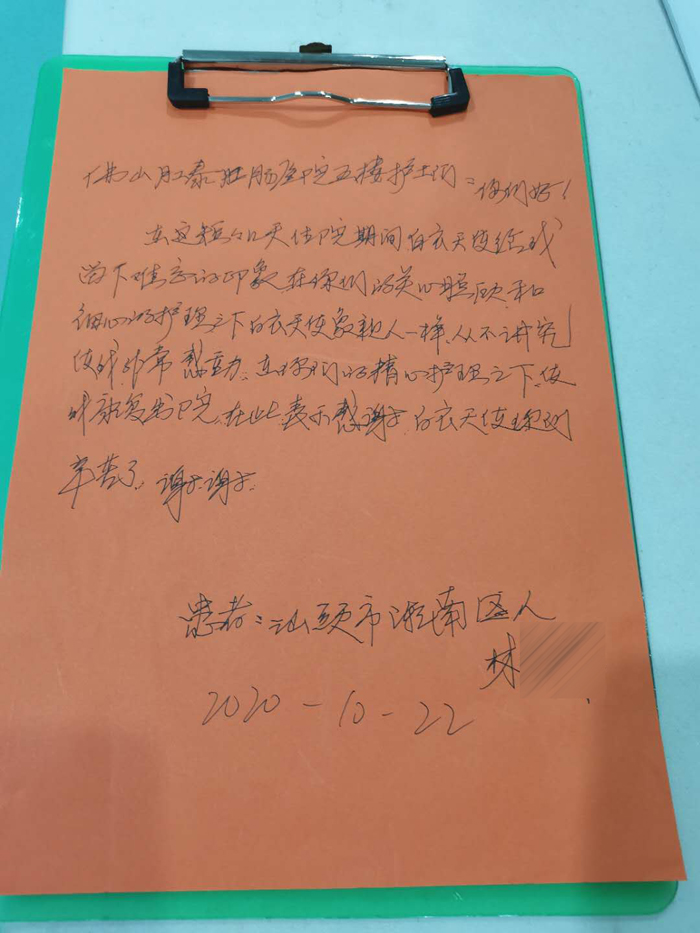 佛山肛泰肛肠医院五楼护士们：你们好！
在这短短几天住院期间白衣天使给我
留下难忘的印象在你们的关心照顾和
细心的护理之下白衣天使象亲人一样，从不讲究
使我非常感动，在你们的精心护理之下，使
我康复出院，在此表示感谢，白衣天使你们
辛苦了，谢谢谢谢，
患者：汕头市潮南区人
林
2020-10-22